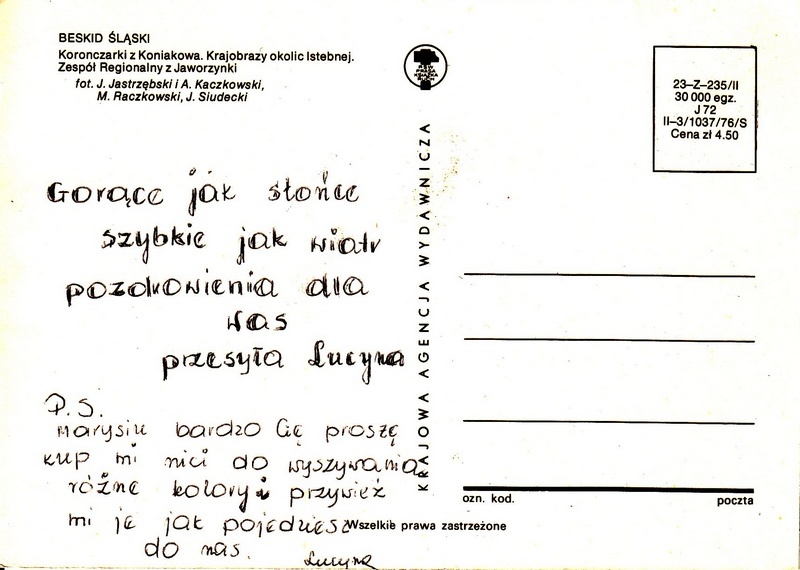 BESKID ŚLĄSKI
Koronczarki z Koniakowa. Krajobrazy okolic Istebnej.
Zespół Regionalny z Jaworzynki
fot. J. Jastrzębski i A. Kaczkowski,
M. Raczkowski, J. Siudecki
RSW
PRASA
KSIĄŻKA
RUCH
23–Z–235/II
30 000 egz.
J 72
II–3/1037/76/S
Cena zł 4.50
KRAJOWA AGENCJA WYDAWNICZA
Gorące jak słońce
szybkie jak wiatr
pozdrowienia dla
was
przesyła Lucyna
P.S.
Marysiu bardzo Cię proszę
kup mi nici do wyszywania
różne kolory i przywieź
mi je jak pojedziesz
do nas.
Lucyna
ozn. kod.
poczta
Wszelkie prawa zastrzeżone